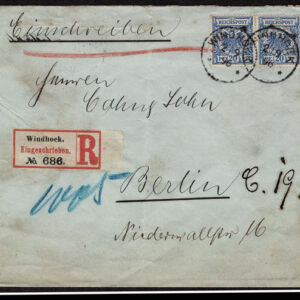 Einschreiben
REICHSPOST REICHSPOST
WINDHOEK
Herren
Sohn
Windhoek.
Eingeschrieben.
No. 686.
R
Berlin C. 19.
Niederwallstr 16